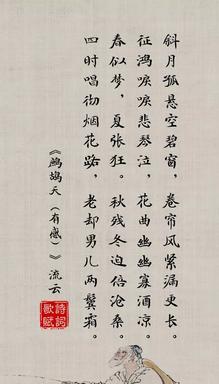 斜月孤悬空碧窗，卷帘风紧漏更长。
征鸿唳唳悲琴泣，花曲幽幽寡酒凉。
春似梦，夏张狂。秋残冬迫倍沧桑。
四时唱彻烟花路，老却男儿两鬓霜。
《鹧鸪天（有感）》流云
詩詞
歌赋